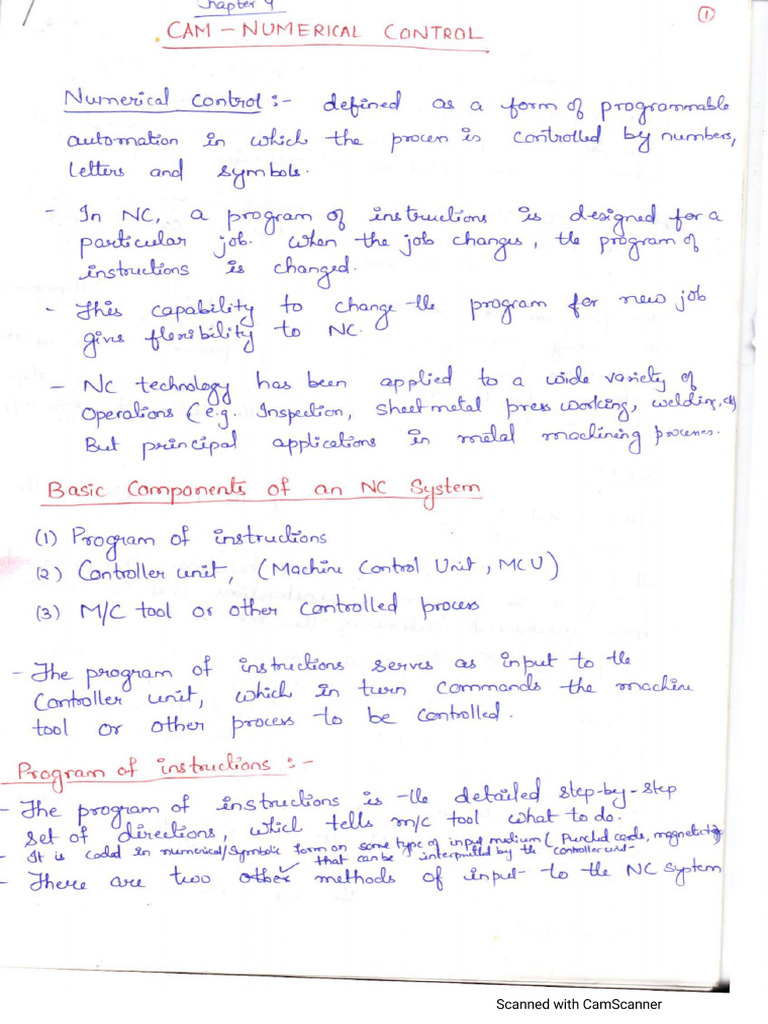 Chapter 4
①
CAM - NUMERICAL CONTROL
Numerical Control :- defined as a form of programmable
automation in which the process is controlled by numbers,
letters and symbols.
- In NC, a program of instructions is designed for a
particular job. When the job changes, the program of
instructions is changed.
- This capability to change the program for new job
give flexibility to NC.
- NC technology has been applied to a wide variety of
Operations (e.g. Inspection, Sheet metal press working, welding,
But principal applications in metal machining processes.
Basic Components of an NC System
(1) Program of instructions
(2) Controller unit, (Machine Control Unit, MCU)
(3) M/C tool or other controlled process
- The program of instructions serves as input to the
Controller unit, which in turn commands the machine
tool or other process to be controlled.
Program of instructions :-
- The program of instructions is the detailed step-by-step
set of directions, which tells m/c tool what to do.
- It is coded in numerical/symbolic form on some type of input medium (Punched cards, magnetic
that can be interpreted by the controller unit
- There are two other methods of input to the NC system
Scanned with CamScanner